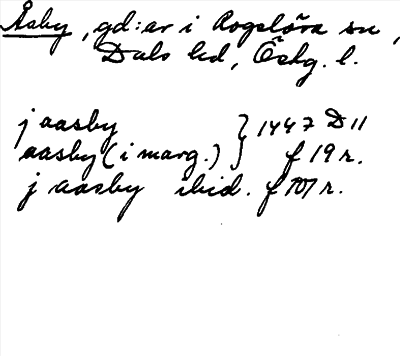 Åsby, gd:ar i Rogslösa sn,
Dals hd, Östg. l.
j aasby } 1447 D 11
aasby (i marg.) } f 19 r.
j aasby ibid. f 101 r.